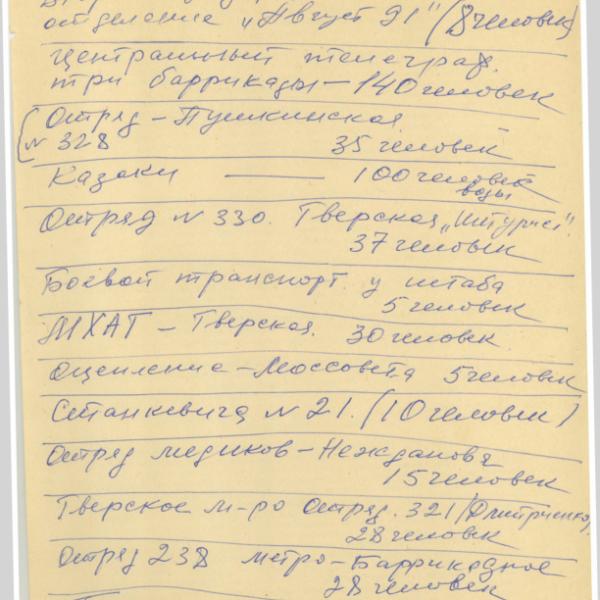 отделение "Август 91" (8 человек)
Центральный телеграф.
три баррикады - 140 человек
Отряд - Пушкинская
N 328 35 человек
Казаки — 100 человек
воды
Отряд N 330. Тверская
37 человек
Боевой транспорт у штаба
5 человек
МХАТ - Тверская. 30 человек
Оцепление - Моссовета 5 человек
Станкевича N 21. (10 человек)
Отряд медиков - Неждановя
15 человек
Тверское м-ро Отряд. 321 (Дмитриченко)
28 человек
Отряд 238 метро - Баррикадное
28 человек